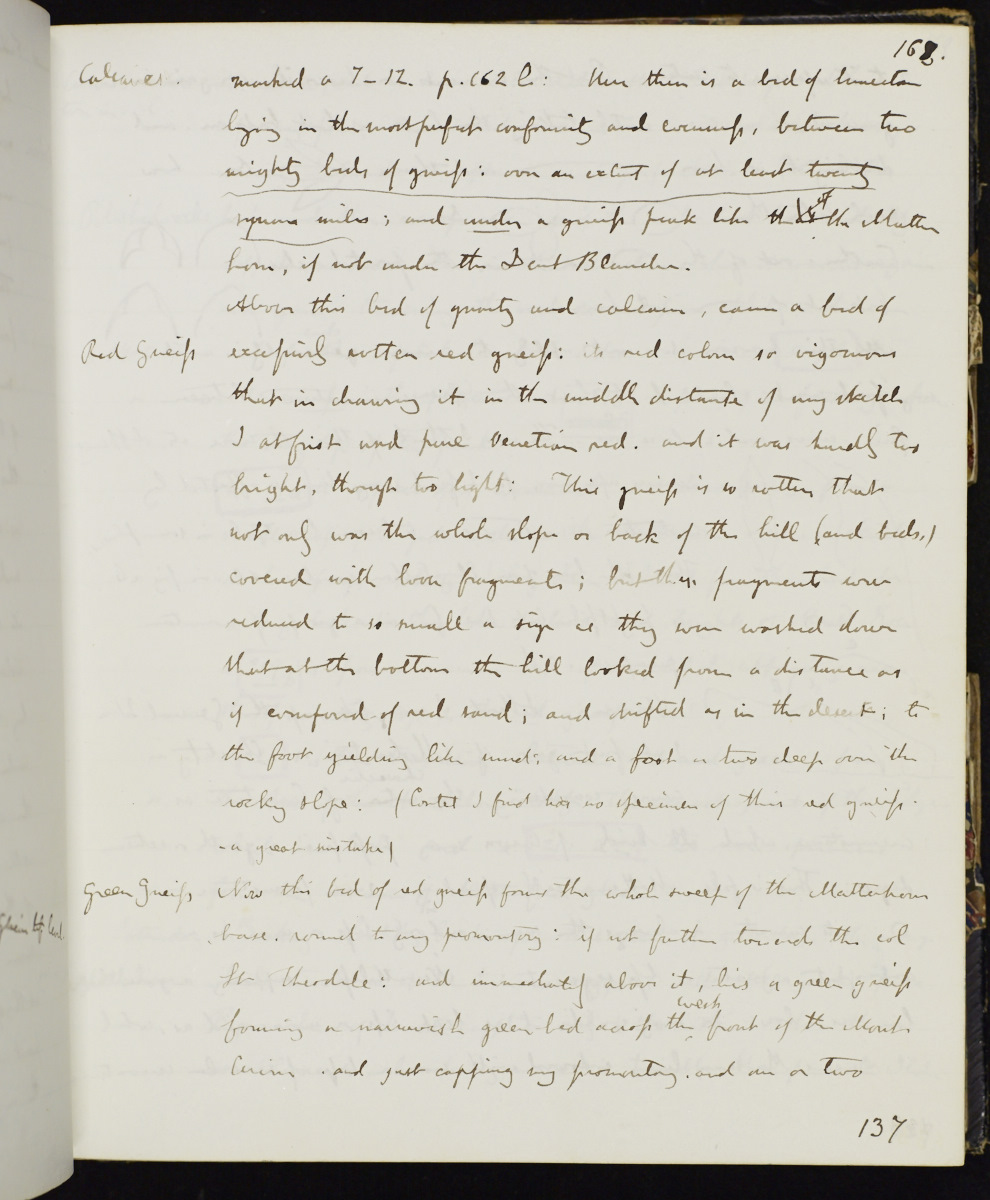 168.
Calcaires. marked a 7-12. p. 162 l: Here then is a bed of limestone
lying in the most perfect conformity and evenness, between two
mighty beds of gneiss: over an extent of at least twenty
square miles; and under a gneiss peak like of the Matter
horn, if not under the Dent Blanche.
Above this bed of quartz and calcaire, came a bed of
Red Gneiss excessively rotten red gneiss: its red colour so vigorous
that in drawing it in the middle distance of my sketch
I at first used pure Venetian red. and it was hardly too
bright, though too light: This gneiss is so rotten that
not only was the whole slope or back of the hill (and beds,)
covered with loose fragments; but these fragments were
reduced to so small a size as they were washed down
that at the bottom the hill looked from a distance as
if composed of red sand; and drifted as in the desert; to
the foot yielding like mud; and a foot or two deep over the
rocky slope: (Coutet I find has no specimen of this red gneiss.
- a great mistake)
Green Gneiss Now this bed of red gneiss forms the whole sweep of the Matterhorn
base. round to my promontory: if not farther towards the col
St Theodule: and immediately above it, lies a green gneiss
forming a narrowish green bed across the west front of the Mont
Cervin. and just capping my promontory. and one or two
137